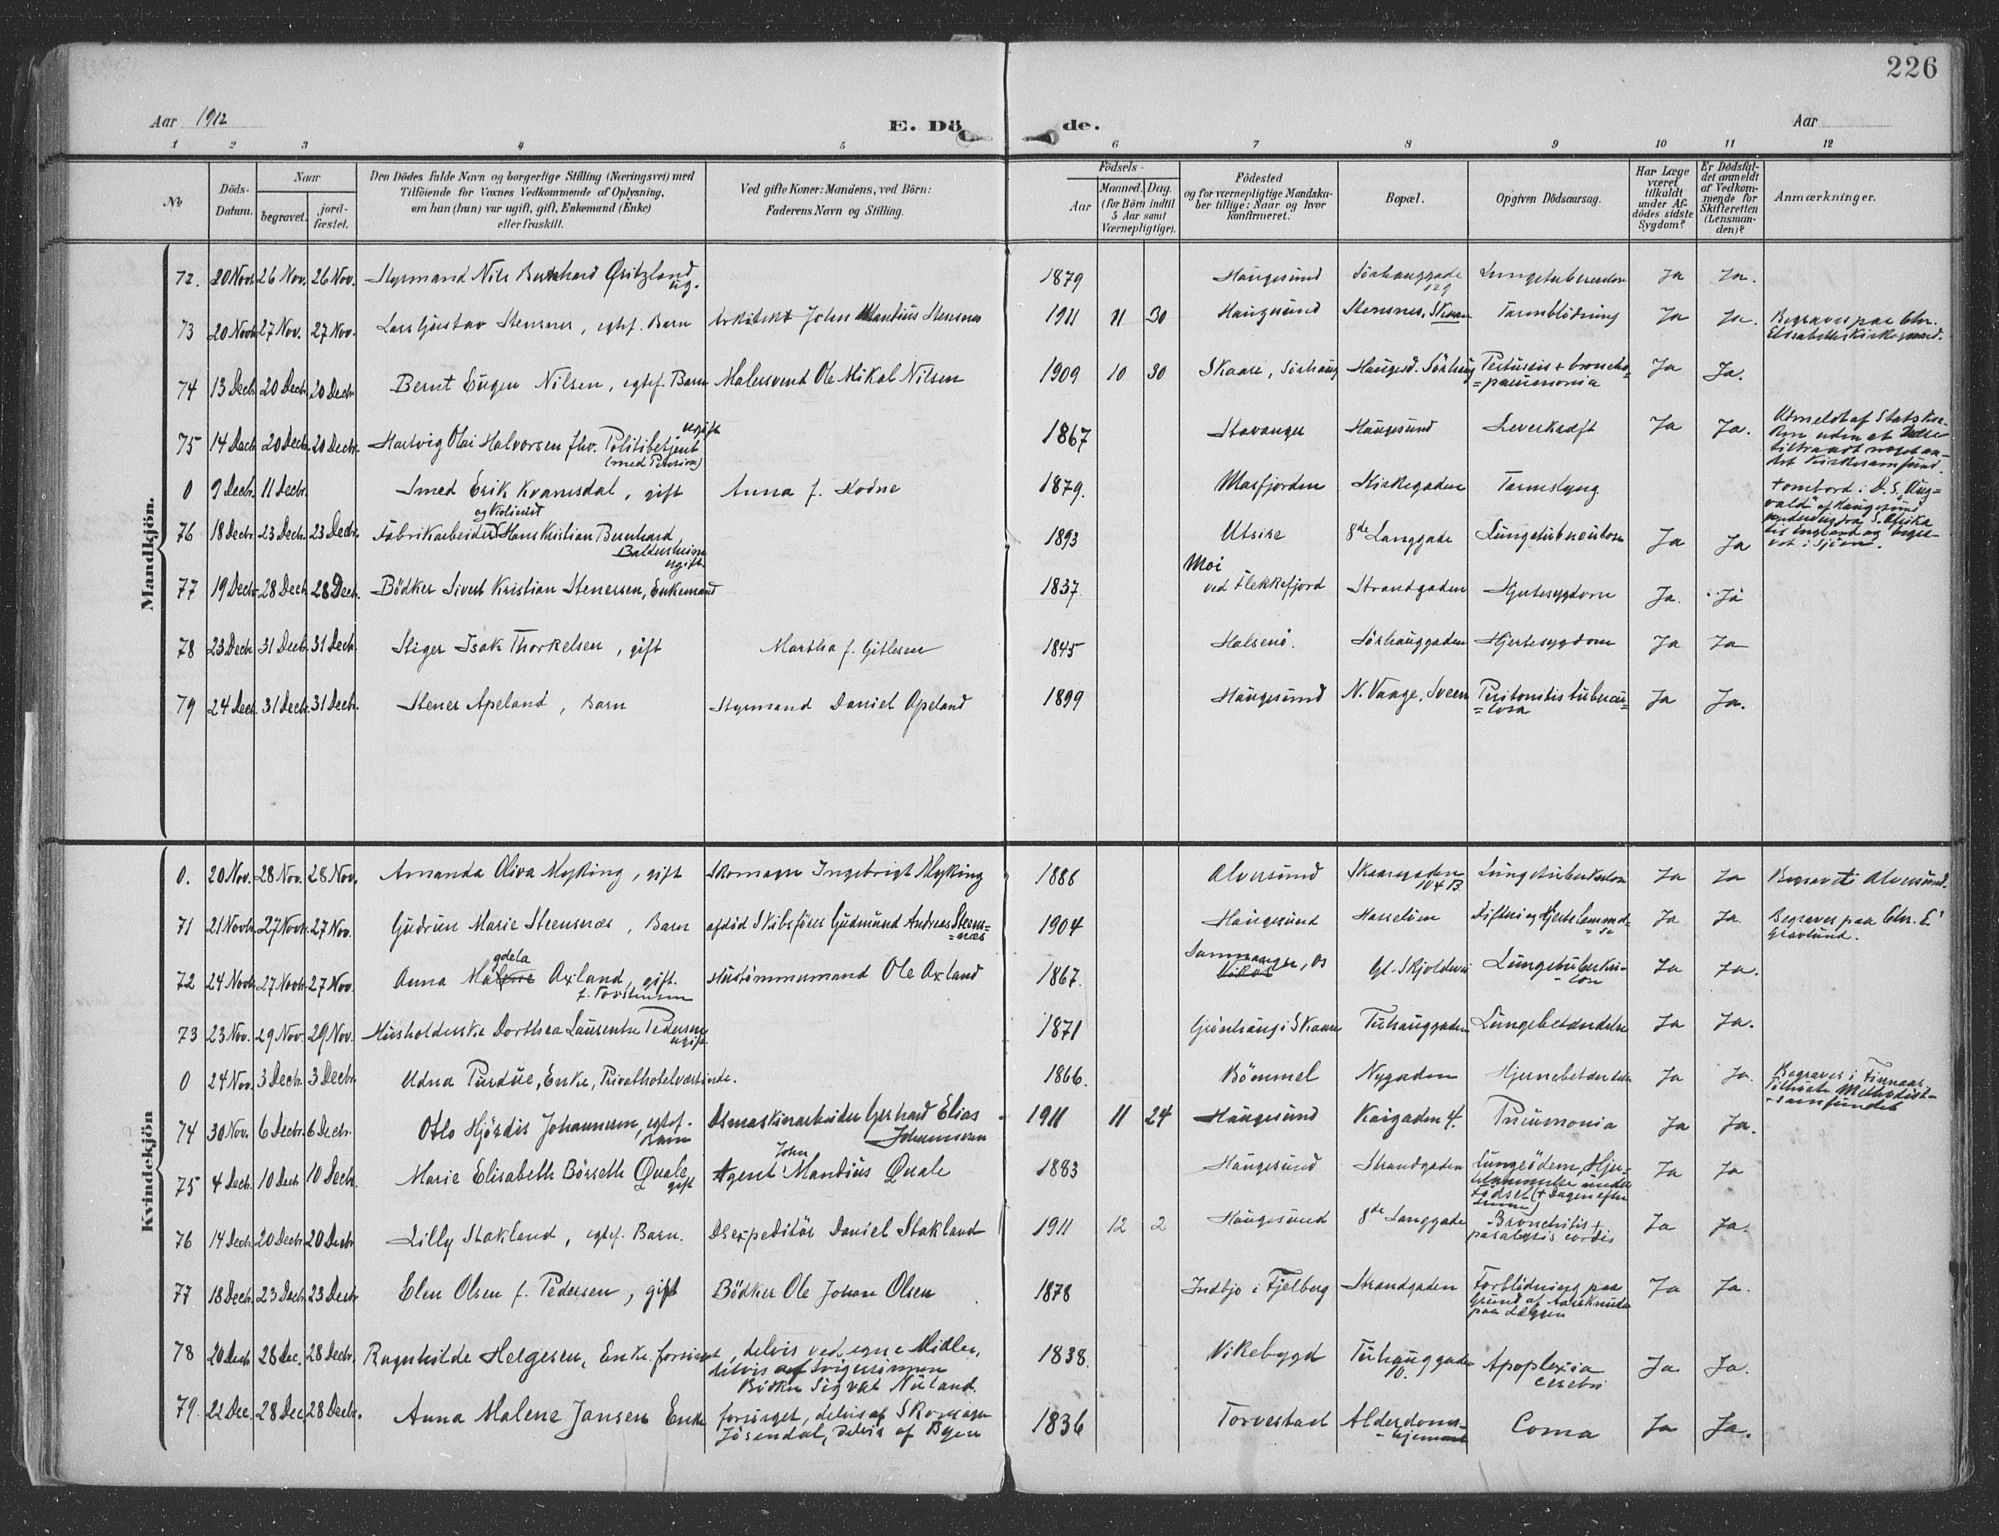 226
Aar 1912
E. Döde.
Aar
1 2 3 4 5 6 7 8 9 10 11 12
No
Döds-Datum.
Naar
begravet.
jord-fæstet.
Den Dödes fulde Navn og borgerlige Stilling (Næringsvei) med
Tilföiende for Voxnes Vedkommende af Oplysning,
om han (hun) var ugift, gift, Enkemand (Enke)
eller fraskilt.
Ved gifte Koner: Mandens, ved Börn:
Faderens Navn og Stilling.
Födsels-
Aar
Maaned. Dag.
(for Börn indtil
5 Aar samt
Værnepligtige).
Födested
og for værnepligtige Mandska-
ber tillige: Naar og hvor
konfirmeret.
Bopæl.
Opgiven Dödsaarsag.
Har Læge
været
tilkaldt
under Af-
dödes sidste
Sygdom?
Er Dödsfal-
det anmeldt
af Vedkom-
mende for
Skifteretten
(Lensman-
den)?
Anmærkninger.
Mandkjön.
72. 20 Novb 26 Nov. 26 Nov. Styrmand Nils Bernhard Qvitzland ug. 1879 Haugesund Sörhauggade 129 Lungetuberculose Ja Ja.
73 20 Novb 27 Nov. 27 Nov. Lars Gustav Stensnes, egtef. Barn Arkitekt John Mandius Stensnes 1911 11 30 Haugesund Stensnes, Skaare Tarmblödning Ja Ja. Begraves paa Chr. Elisabeths Kirkegaard.
74 13 Decb 20 Decb. 20 Decb. Bernt Eugen Nilsen, egtef. Barn Malersvend Ole Mikal Nilsen 1909 10 30 Skaare, Sörhaug Haugesd. Sörhaug Pertussis + broncho=pneumonia Ja Ja.
75 14 Decb 20 Decb. 20 Decb. Hartvig Olai Halvorsen fhv. Politibetjent (med Pension) ugift 1867 Stavanger Haugesund Leverkræft Ja Ja. Udmeldt af Statskirken uden at
0 9 Decb. 11 Decb. Smed Erik Kvamsdal, gift Anna f. Hodne 1879. Masfjorden Kirkegaden Tarmslyng + ombord i D.S. "Aug=vald" af Haugesund
76 18 Decb. 23 Decb. 23 Decb. Fabrikarbeider og Violinist Hans Kristian Bernhard Baldersheim ugift. 1893 Utsire 8de Langgade Lungetuberculose Ja Ja
77 19 Decb. 28 Decb 28 Decb. Bödker Sivert Kristian Stenersen, Enkemand 1837. Moi ved Flekkefjord Strandgaden Hjertesygdom Ja. Ja
78 23 Decb. 31 Decb. 31 Decb. Stiger Isak Thorkelsen, gift Martha f. Gitlesen 1845 Halsenö. Sörhauggaden Hjertesygdom Ja Ja
79 24 Decb. 31 Decb. 31 Decb. Stener Apeland, Barn Styrmand Daniel Apeland 1899 Haugesund N. Vaage, Sveen Peritonitis tubercu=losa Ja Ja.
Kvindekjön
0. 20 Nov. 28 Nov. 28 Nov. Amanda Oliva Myking, gift Skomager Ingebrigt Myking 1886 Alversund Skaaregaden 104 B Lungetuberkulose Ja Ja Begravet i Alversund.
71 21 Novb. 27 Novb. 27 Nov. Gudrun Marie Steensnæs, Barn afdöd Skibsförer Gudmund Andreas Steens=næs 1904 Haugesund Hasseloen Difteri og Hjertelammelse Ja Ja. Begraves paa Chr. E' Gravlund.
72 24 Novb. 27 Novb. 27 Nov. Anna Magdela Axland, gift. f. Torstensen Hustömmermand Ole Axland 1867. Samnanger, Os Gl. Skjoldevei Lungetuberku-lose Ja Ja.
73 23 Nov. 29 Nov. 29 Nov. Husholderske Dorthea Laurentse Pedersen ugift 1871 Grönhaug i Skaare Tuhauggaden Lungebetændelse Ja Ja.
0 24 Nov. 3 Decb. 3 Decb. Udna Purdue, Enke, Privathotelværtinde. 1866. Bömmel Nygaden Hjernebetændelse Ja Ja. Begraves i Finnaas Tilhörte Methodist-samfundet
74 30 Nov. 6 Decb. 6 Decb. Otlo Hjördis Johannesen, egtef. Barn Gerhard Elias Johannesen 1911 11 24 Haugesund Kaigaden 4. Pneumonia Ja Ja.
75 4 Decb. 10 Decb 10 Decb. Marie Elisabeth Börseth Quale gift Agent John Mandius Quale 1883 Haugesund Strandgaden Lungeödem, Hjer-telammelse under Födsel (+ Dagen efter Ja Ja
76 14 Decb. 20 Decb. 20 Decb. Lilly Stakland, egtef. Barn. Expeditör Daniel Stakland 1911 12 2 Haugesund 8de Langgade Bronchitis + paralysis cordis Ja Ja.
77 18 Decb. 23 Decb. 23 Decb. Elen Olsen f. Pedersen, gift Bödker Ole Johan Olsen 1878 Indbjo i Fjelberg Strandgaden Forblödning paa Grund af Aareknude paa Læggen Ja Ja.
78 20 Decb. 28 Dec. 28 Decb. Ragnhilde Helgesen, Enke. forsörget, delvis ved egne Midler, delvis af Svigersönnen Sigval Nuland. 1838. Vikebygd Tuhauggaden 10. Apoplexia cerebri Ja Ja.
79. 22 Dec. 28 Dec. 28 Decb. Anna Malene Jansen Enke forsörget, delvis af Skomager Jösendal, delvis af Byen 1836 Torvestad Alderdoms-hjemmet Coma Ja Ja.